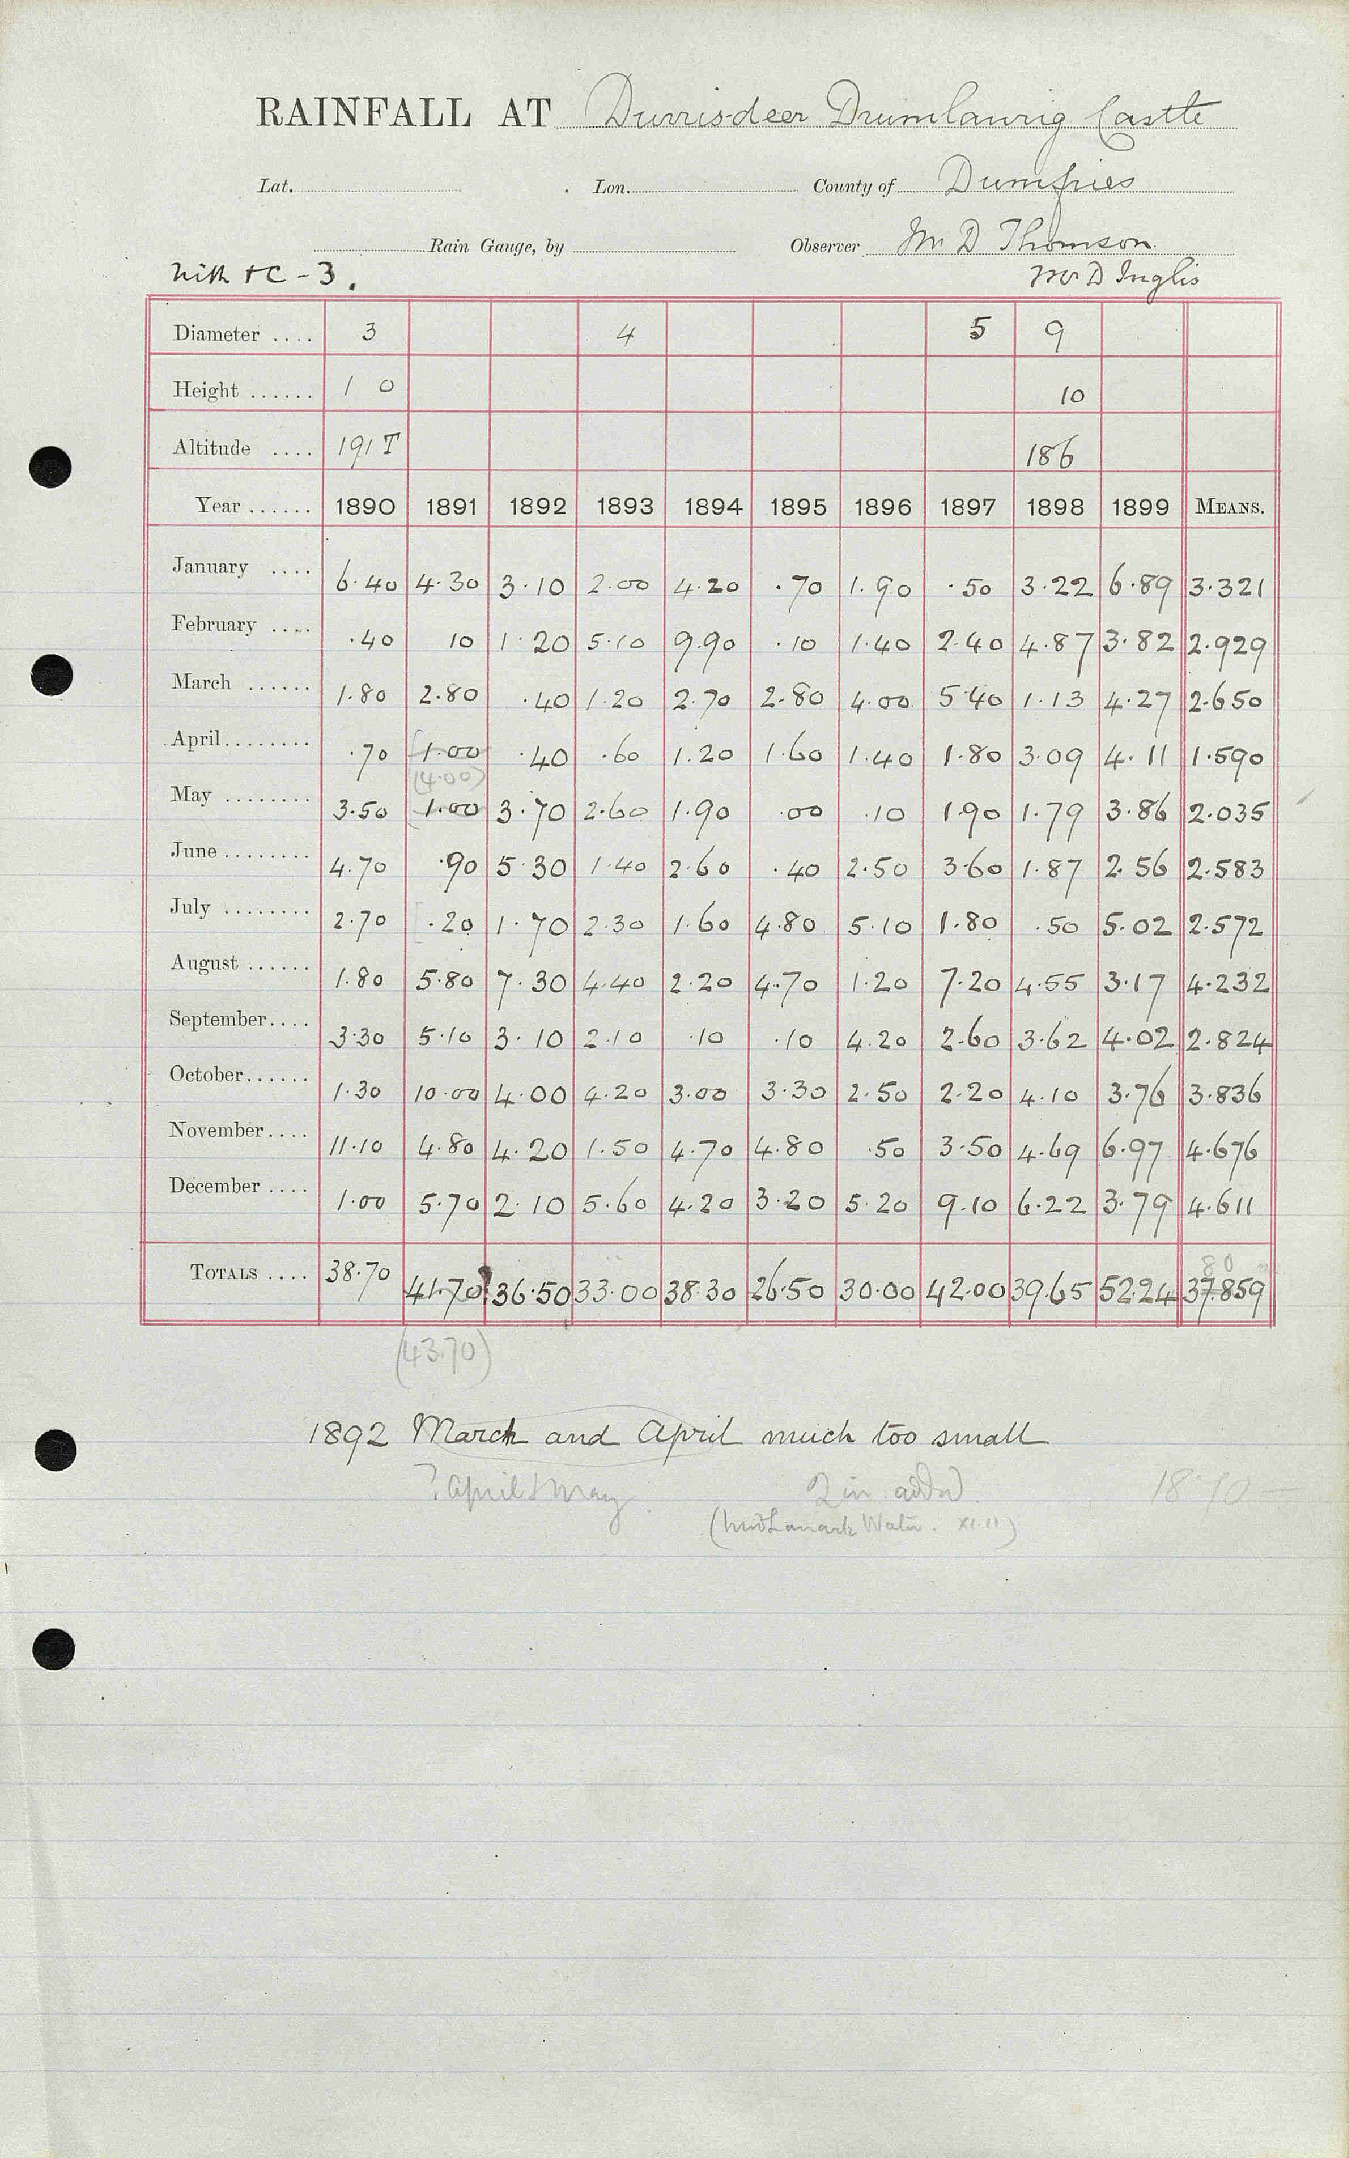 RAINFALL AT Durrisdeer Drumlanrig Castle
Lat. Lon. County of Dumfries
Rain Gauge, by Observer Mr D Thomson
Nith &C - 3. Mr D Inglis
Diameter .... 3 4 5 9
Height ...... 1 0 10
Altitude .... 191 T 186
Year ...... 1890 1891 1892 1893 1894 1895 1896 1897 1898 1899 MEANS.
January .... 6.40 4.30 3.10 2.00 4.20 .70 1.90 .50 3.22 6.89 3.321
February .... .40 10 1.20 5.10 9.90 .10 1.40 2.40 4.87 3.82 2.929
March ...... 1.80 2.80 .40 1.20 2.70 2.80 4.00 5.40 1.13 4.27 2.650
April ........ .70 1.00 .40 .60 1.20 1.60 1.40 1.80 3.09 4.11 1.590
(4.00)
May ........ 3.50 1.00 3.70 2.60 1.90 .00 .10 1.90 1.79 3.86 2.035
June ........ 4.70 .90 5.30 1.40 2.60 .40 2.50 3.60 1.87 2.56 2.583
July ........ 2.70 .20 1.70 2.30 1.60 4.80 5.10 1.80 .50 5.02 2.572
August ...... 1.80 5.80 7.30 4.40 2.20 4.70 1.20 7.20 4.55 3.17 4.232
September.... 3.30 5.10 3.10 2.10 .10 .10 4.20 2.60 3.62 4.02 2.824
October...... 1.30 10.00 4.00 4.20 3.00 3.30 2.50 2.20 4.10 3.76 3.836
November.... 11.10 4.80 4.20 1.50 4.70 4.80 .50 3.50 4.69 6.97 4.676
December .... 1.00 5.70 2.10 5.60 4.20 3.20 5.20 9.10 6.22 3.79 4.611
80
TOTALS .... 38.70 41.70? 36.50 33.00 38.30 26.50 30.00 42.00 39.65 52.24 37.859
(43.70)
1892 March and April much too small
? April & May 2 in. added 1890
(Lanark Water. XI.11)